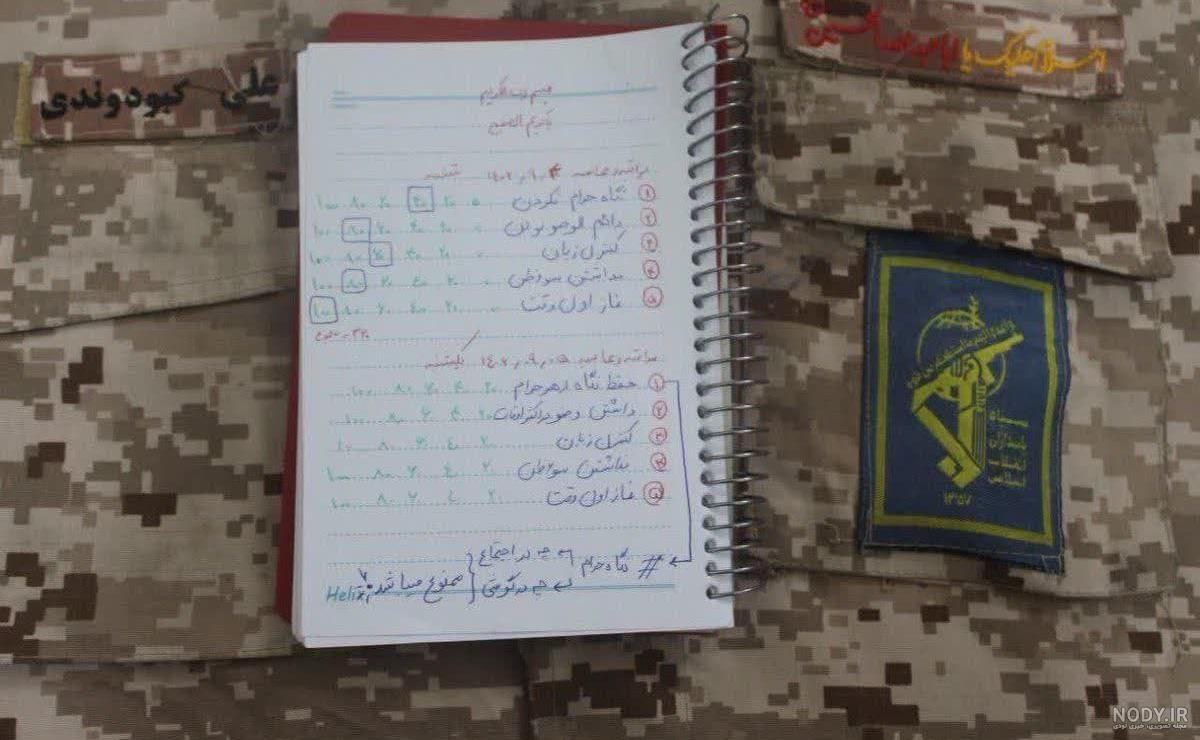 علی کبودوندی
السلام علیک یا اباعبدالله الحسین
بسم رب الکریم
مراقبه و محاسبه ۱۴۰۲٫۹٫۴ شنبه
۱ نگاه حرام نکردن ۰ ۲۰ ۴۰ ۶۰ ۸۰ ۱۰۰
۲ دائم الوضو بودن ۰ ۲۰ ۴۰ ۶۰ ۸۰ ۱۰۰
۳ کنترل زبان ۰ ۲۰ ۴۰ ۶۰ ۸۰ ۱۰۰
۴ نداشتن سوءظن ۰ ۲۰ ۴۰ ۶۰ ۸۰ ۱۰۰
۵ نماز اول وقت ۰ ۲۰ ۴۰ ۶۰ ۸۰ ۱۰۰
مجموع =
مراقبه و محاسبه ۱۴۰۲٫۹٫۵ یکشنبه
۱ حفظ نگاه از هر حرام ۲۰ ۴۰ ۶۰ ۸۰ ۱۰۰
۲ داشتن وضو در اکثر اوقات ۲۰ ۴۰ ۶۰ ۸۰ ۱۰۰
۳ کنترل زبان ۲۰ ۴۰ ۶۰ ۸۰ ۱۰۰
۴ نداشتن سوءظن ۲۰ ۴۰ ۶۰ ۸۰ ۱۰۰
۵ نماز اول وقت ۲۰ ۴۰ ۶۰ ۸۰ ۱۰۰
# نگاه حرام
چه در اجتماع
چه در گوشی
ممنوع میباشد
Helix
سپاه
پاسداران
انقلاب
اسلامی
۱۳۵۷
NODY.IR